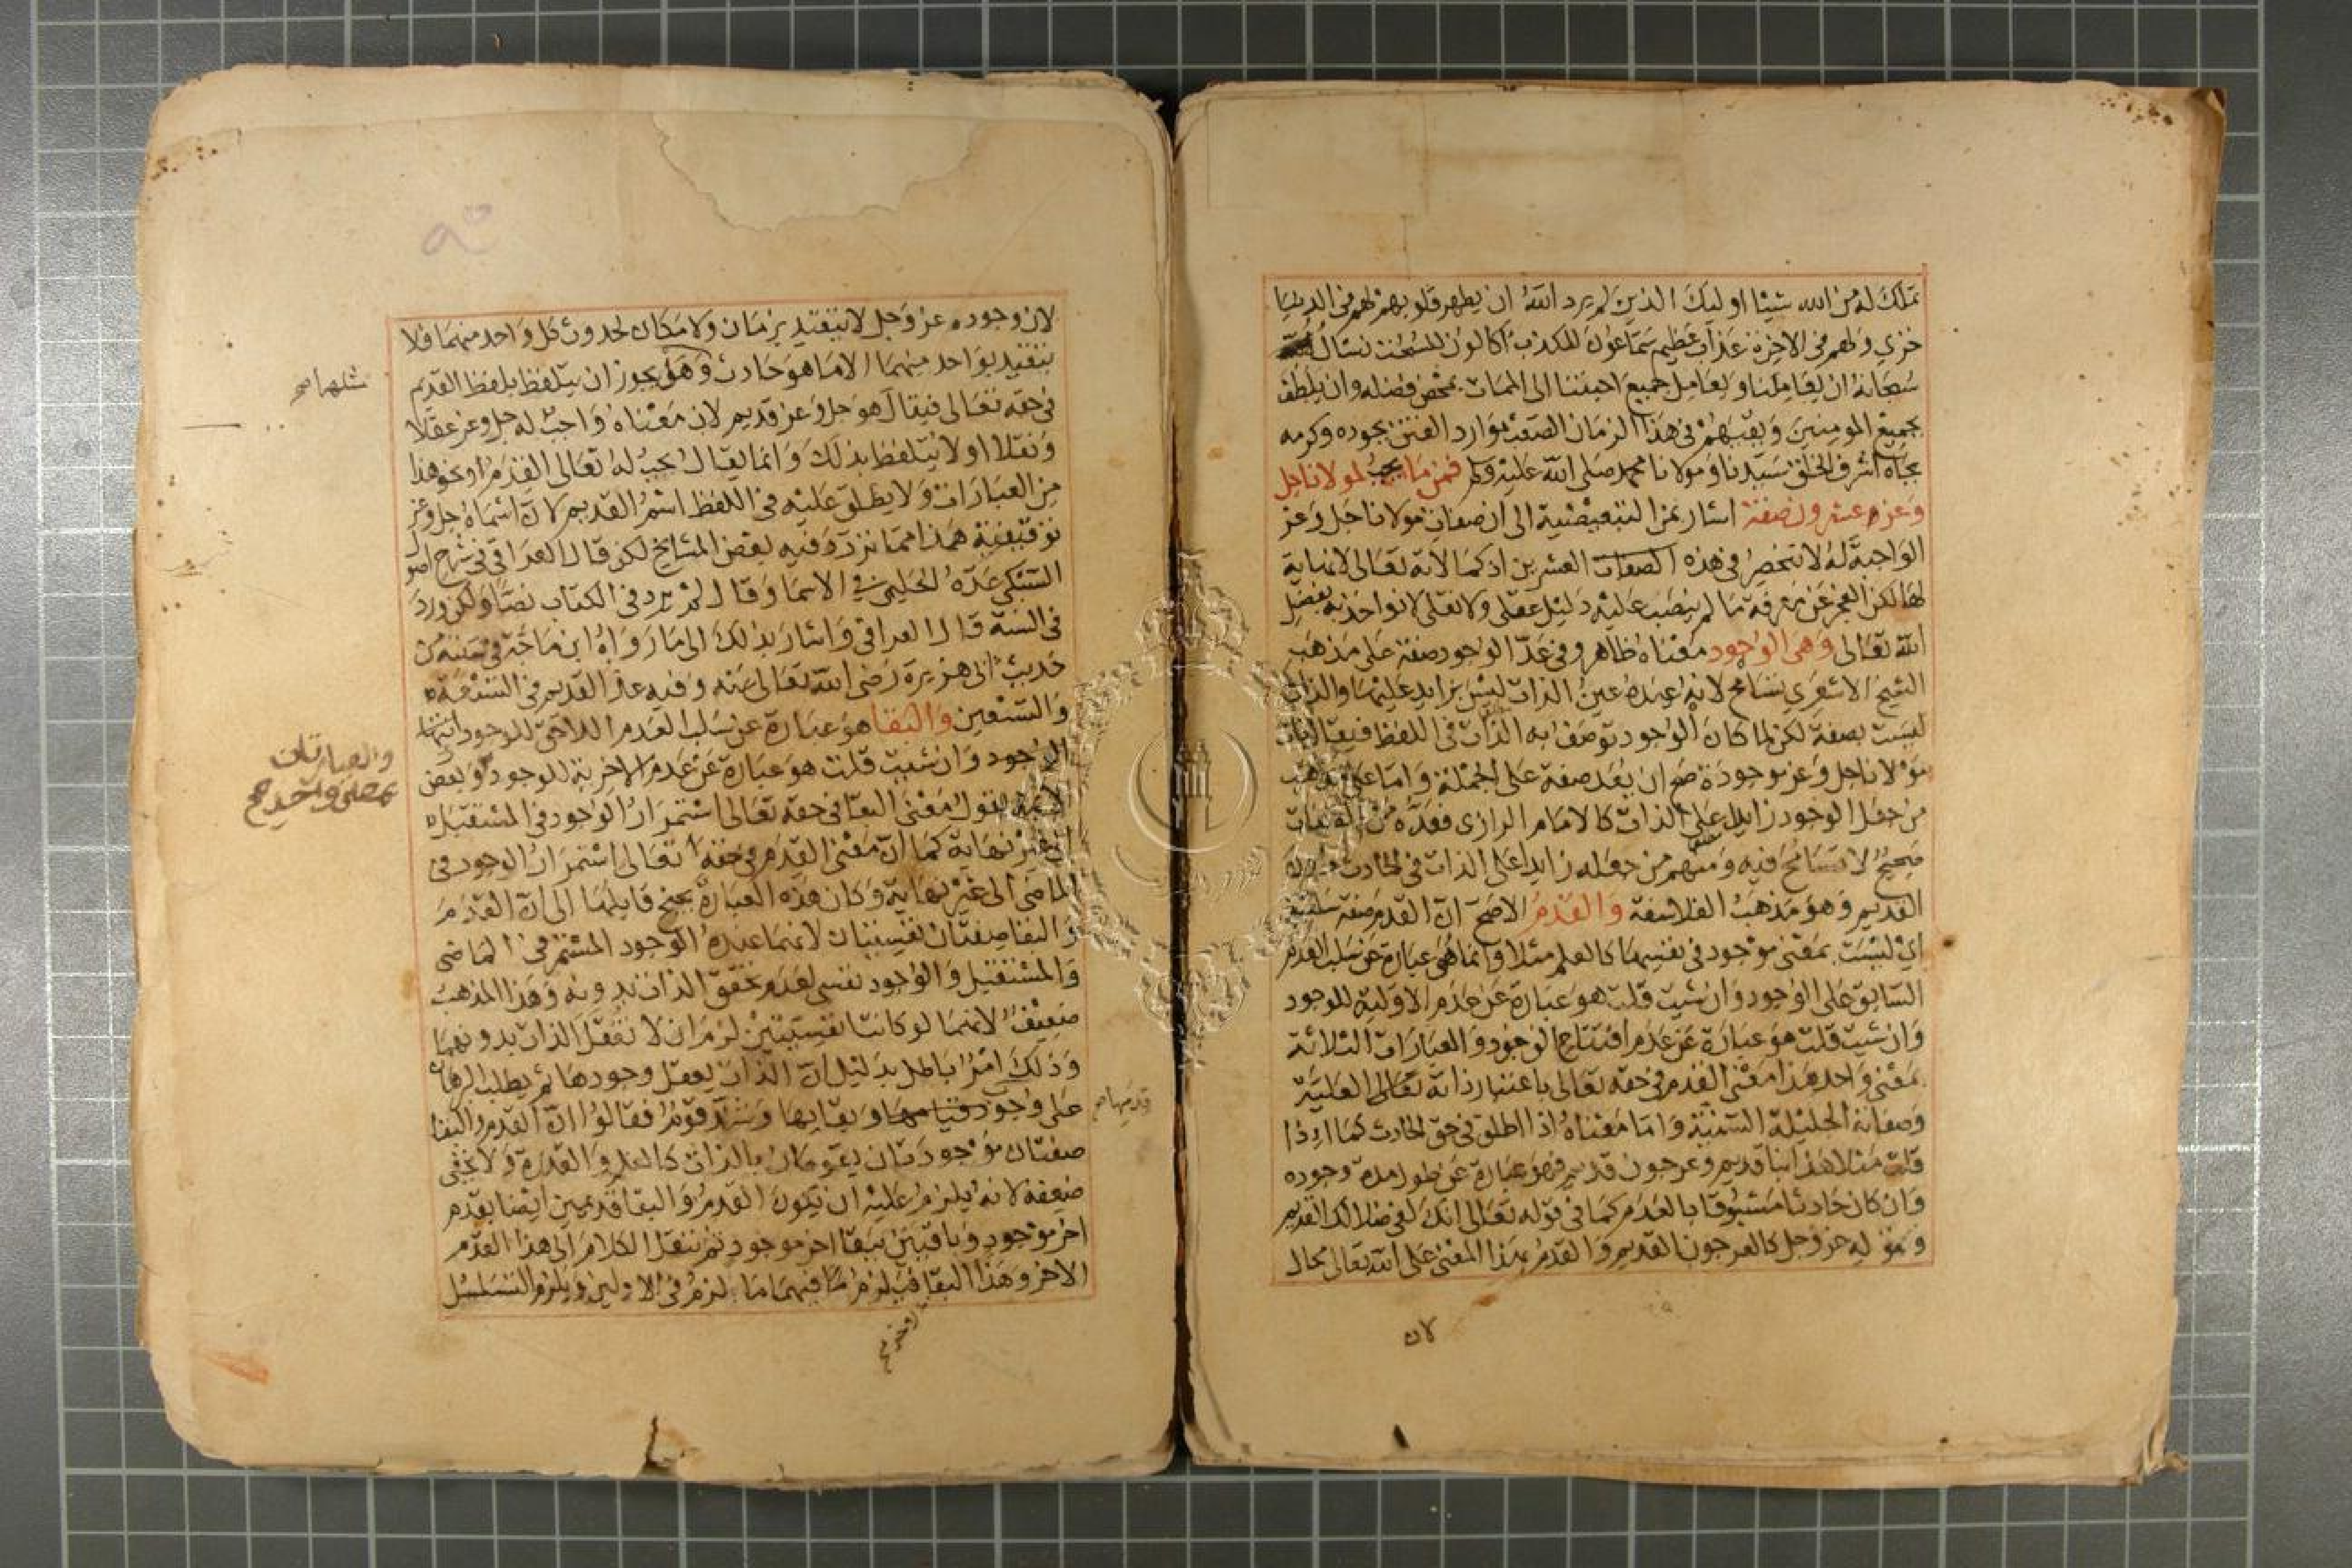 تملك له من الله شيئا اوليك الذين لم يرد الله ان يطهر قلوبهم لهم في الدنيا
خزي ولهم في الاخرة عذاب عظيم سماعون للكذب اكالون للسحت نسال الله
سبحانه ان يعاملنا ويعامل جميع احبتنا الى الممات بمحض فضله وان يلطف
بجميع المومنين ويقيهم في هذا الزمان الصعب موارد الفتن بجوده وكرمه
بجاه اشرف الخلق سيدنا ومولانا محمد صلى الله عليه وسلم فمن ما يجب لمولانا جل
وعز عشرون صفة اشار بمن التبعيضية الى ان صفات مولانا جل وعز
الواجبة له لا تنحصر في هذه الصفات العشرين اذ كمالاته تعالى لا نهاية
لها لكن العجز عن معرفة ما لم ينصب عليه دليل عقلي ولا نقلي لا نواخذ به بفضل
الله تعالى وهي الوجود معناه ظاهر وفي عد الوجود صفة على مذهب
الشيخ الاشعري تسامح لانه عنده عين الذات ليس بزايد عليها والذات
ليست بصفة لكن لما كان الوجود توصف به الذات في اللفظ فيقال ذات
مولانا جل وعز موجودة صح ان يعد صفة على الجملة واما على مذهب
من جعل الوجود زايدا على الذات كالامام الرازي فعده من الصفات
صحيح لا تسامح فيه ومنهم من جعله زايدا على الذات في الحادث دون
القديم وهو مذهب الفلاسفة والقدم الاصح ان القدم صفة سلبية
اي ليست بمعنى موجود في نفسها كالعلم مثلا وانما هي عبارة عن سلب العدم
السابق على الوجود وان شيت قلت هو عبارة عن عدم الاولية للوجود
وان شيت قلت هو عبارة عن عدم افتتاح الوجود والعبارات الثلاثة
بمعنى واحد هذا معنى القدم في حقه تعالى باعتبار ذاته تعالى العلية
وصفاته الجليلة السنية واما معناه اذا اطلق في حق الحادث كما اذا
قلت مثلا هذا بنا قديم وعرجون قديم فهو عبارة عن طول مدة وجوده
وان كان حادثا مسبوقا بالعدم كما في قوله تعالى انك لفي ضلالك القديم
وقوله عز وجل كالعرجون القديم والقدم بهذا المعنى على الله تعالى محال
لان
لان وجوده عز وجل لا يتقيد بزمان ولا مكان لحدوث كل واحد منهما فلا
يتقيد بواحد منهما الا ما هو حادث وهل يجوز ان يتلفظ بلفظ القديم
في حقه تعالى فيقال هو جل وعز قديم لان معناه واجب له جل وعز عقلا
ونقلا او لا يتلفظ بذلك وانما يقال يجب له تعالى القدم او نحو هذا
من العبارات ولا يطلق عليه في اللفظ اسم القديم لان اسماه جل وعز
توقيفية هذا مما تردد فيه بعض المشايخ لكن قال العراقي في شرح اصول
السبكي عده الحليمي في الاسما وقال لم يرد في الكتاب نصا ولكن ورد
في السنة قال العراقي واشار بذلك الى ما رواه ابن ماجة في سننه من
حديث ابي هريرة رضي الله تعالى عنه وفيه عد القديم في التسعة
والتسعين والبقا هو عبارة عن سلب العدم اللاحق للوجود
الوجود وان شيت قلت هو عبارة عن عدم الاخرية للوجود وبعض
الايمة يقول معنى البقا في حقه تعالى استمرار الوجود في المستقبل
الى غير نهاية كما ان معنى القدم في حقه تعالى استمرار الوجود في
الماضي الى غير نهاية وكان هذه العبارة يجنح قايلها الى ان القدم
والبقا صفتان نفسيتان لانهما عنده الوجود المستمر في الماضي
والمستقبل والوجود نفسي لعدم تحقق الذات بدونه وهذا المذهب
ضعيف لانهما لو كانتا نفسيتين لزم ان لا تعقل الذات بدونهما
وذلك امر باطل بدليل ان الذات يعقل وجودها ثم يطلب البرهان
على وجوب قيامها وبقايها وشذ قوم فقالوا ان القدم والبقا
صفتان موجودتان يقومان بالذات كالعلم والقدرة ولا يخفى
ضعفه لانه يلزم عليه ان يكون القدم والبقا قديمين ايضا بقدم
اخر موجود وباقيين ببقا اخر موجود ثم ننقل الكلام الى هذا القدم
الاخر وهذا البقا فيلزم فيهما ما لزم في الاولين ويلزم التسلسل
والعبارتان
بمعنى واحد صح
قدمها صح